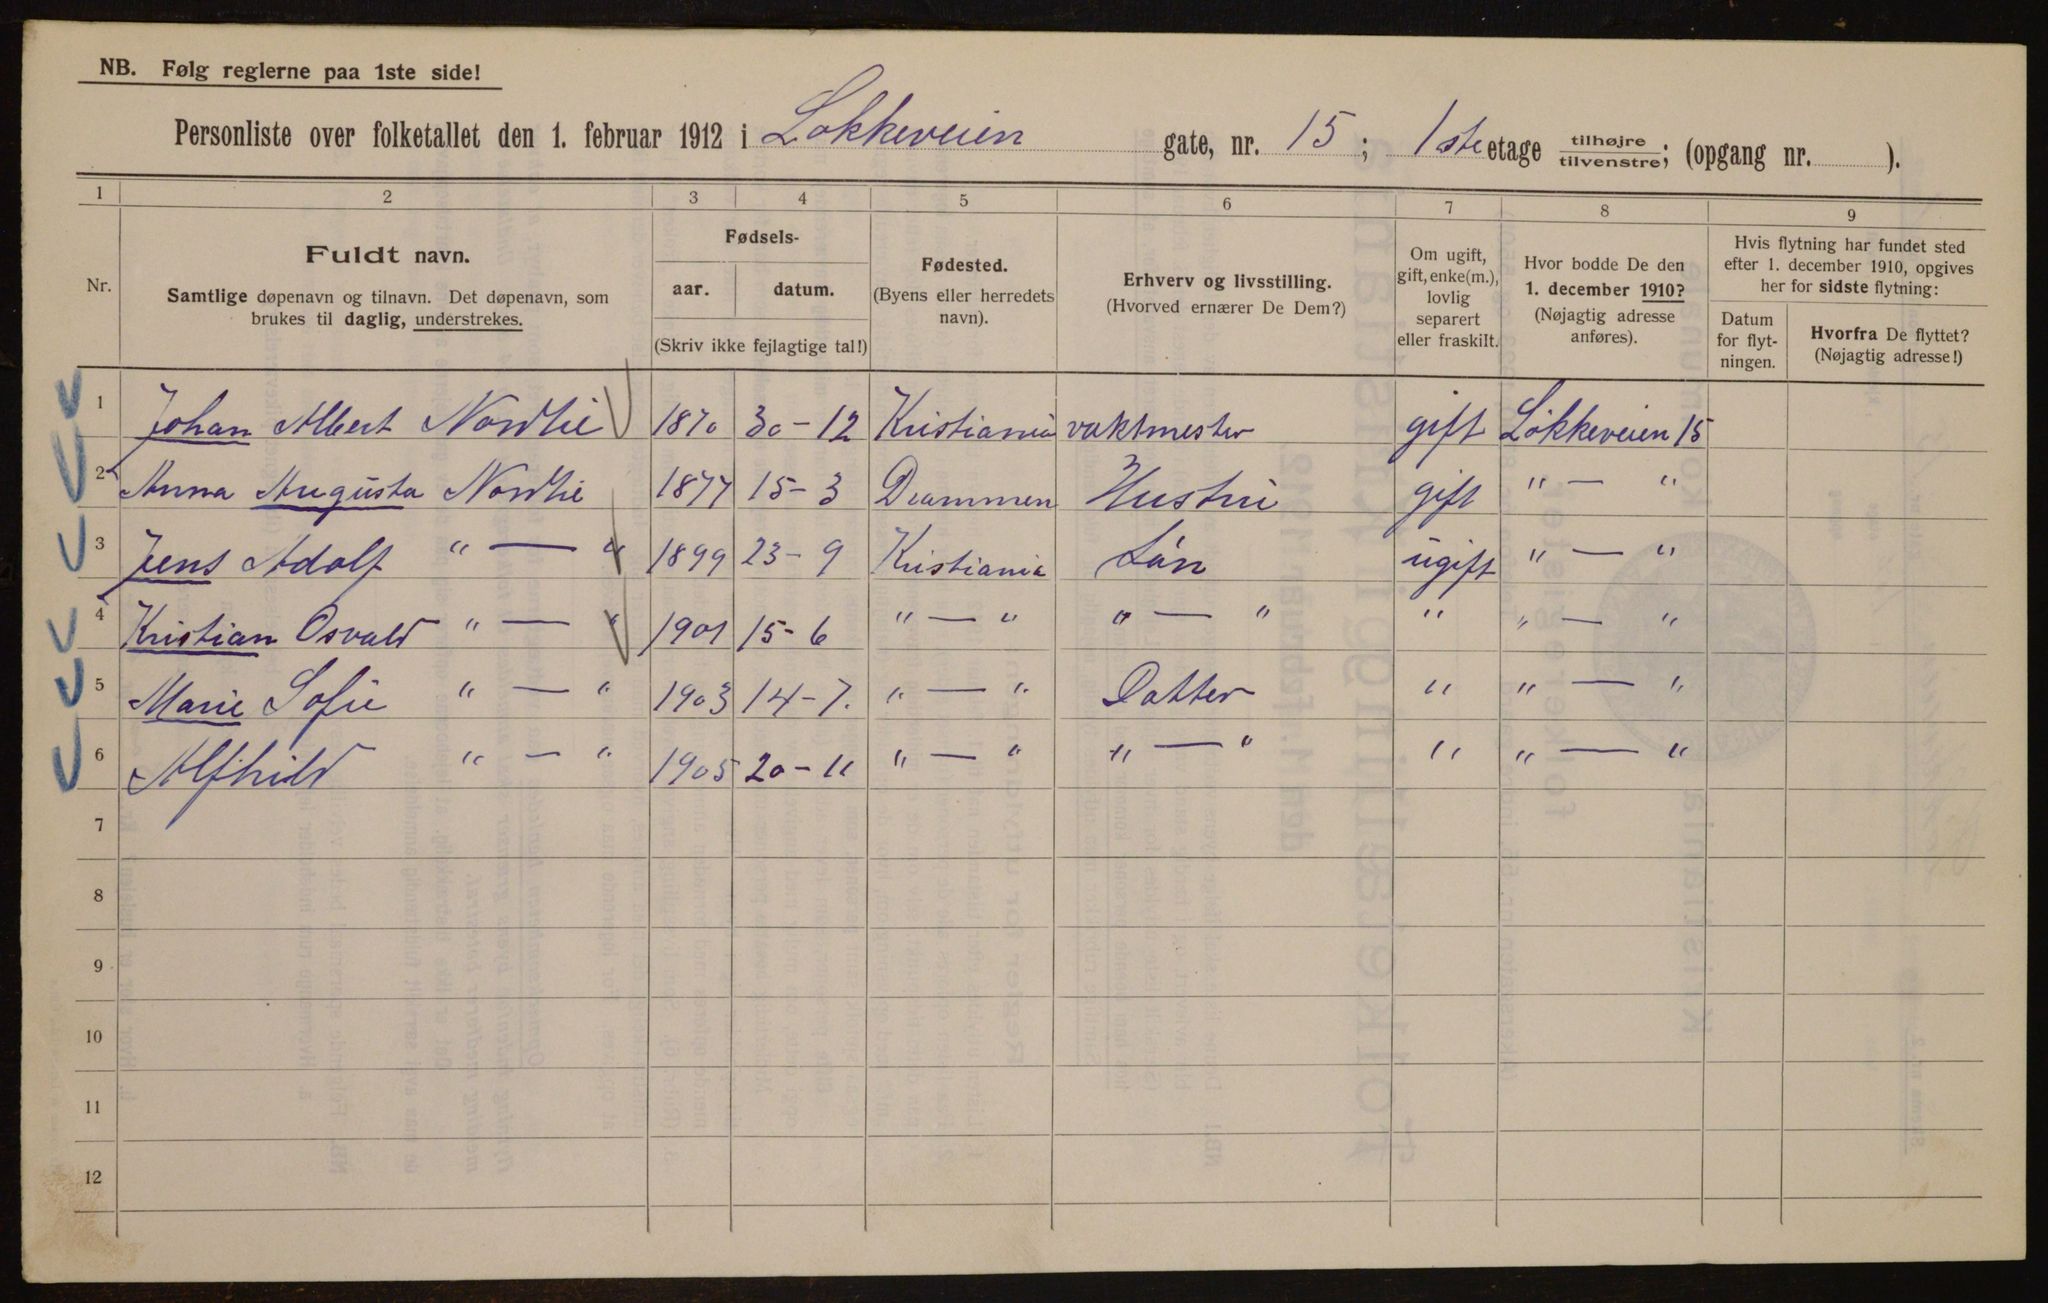 NB. Følg reglerne paa 1ste side!
Personliste over folketallet den 1. februar 1912 i Løkkeveien gate, nr. 15; 1ste etage tilhøjre / tilvenstre; (opgang nr. ).
1 2 3 4 5 6 7 8 9
Nr.
Fuldt navn.
Samtlige døpenavn og tilnavn. Det døpenavn, som
brukes til daglig, understrekes.
Fødsels-
aar. datum.
(Skriv ikke fejlagtige tal!)
Fødested.
(Byens eller herredets
navn).
Erhverv og livsstilling.
(Hvorved ernærer De Dem?)
Om ugift,
gift, enke(m.),
lovlig
separert
eller fraskilt.
Hvor bodde De den
1. december 1910?
(Nøjagtig adresse
anføres).
Hvis flytning har fundet sted
efter 1. december 1910, opgives
her for sidste flytning:
Datum
for flyt-
ningen.
Hvorfra De flyttet?
(Nøjagtig adresse!)
1 Johan Albert Nordlie 1870 30-12 Kristiania vaktmester gift Løkkeveien 15
2 Anna Augusta Nordlie 1877 15-3 Drammen Hustru gift " — "
3 Jens Adolf " — " 1899 23-9 Kristiania Søn ugift " — "
4 Kristian Osvald " — " 1901 15-6 " — " " — " " " — "
5 Marie Sofie " — " 1903 14-7. " — " Datter " " — "
6 Alfhild " — " 1905 20-11 " — " " — " " " — "
7
8
9
10
11
12